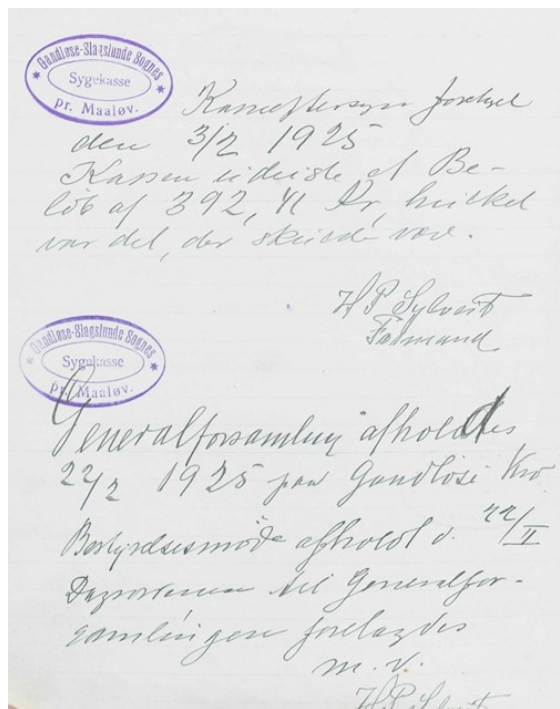 Gandløse-Slagslunde Sognes
Sygekasse
pr. Maaløv.
Kasseeftersyn foretaget
den 3/2 1925
Kassen udviste et Be-
løb af 392,41 Kr, hvilket
var det, der skulde være.
H P Sylvest
Formand
Gandløse-Slagslunde Sognes
Sygekasse
pr. Maaløv.
Generalforsamling afholdes
22/2 1925 paa Gandløse Kro
Bestyrelsesmøde afholdt d. 22/II
Dagsordenen til Generalfor-
samlingen forelagdes
m. v.
H P Sylvest